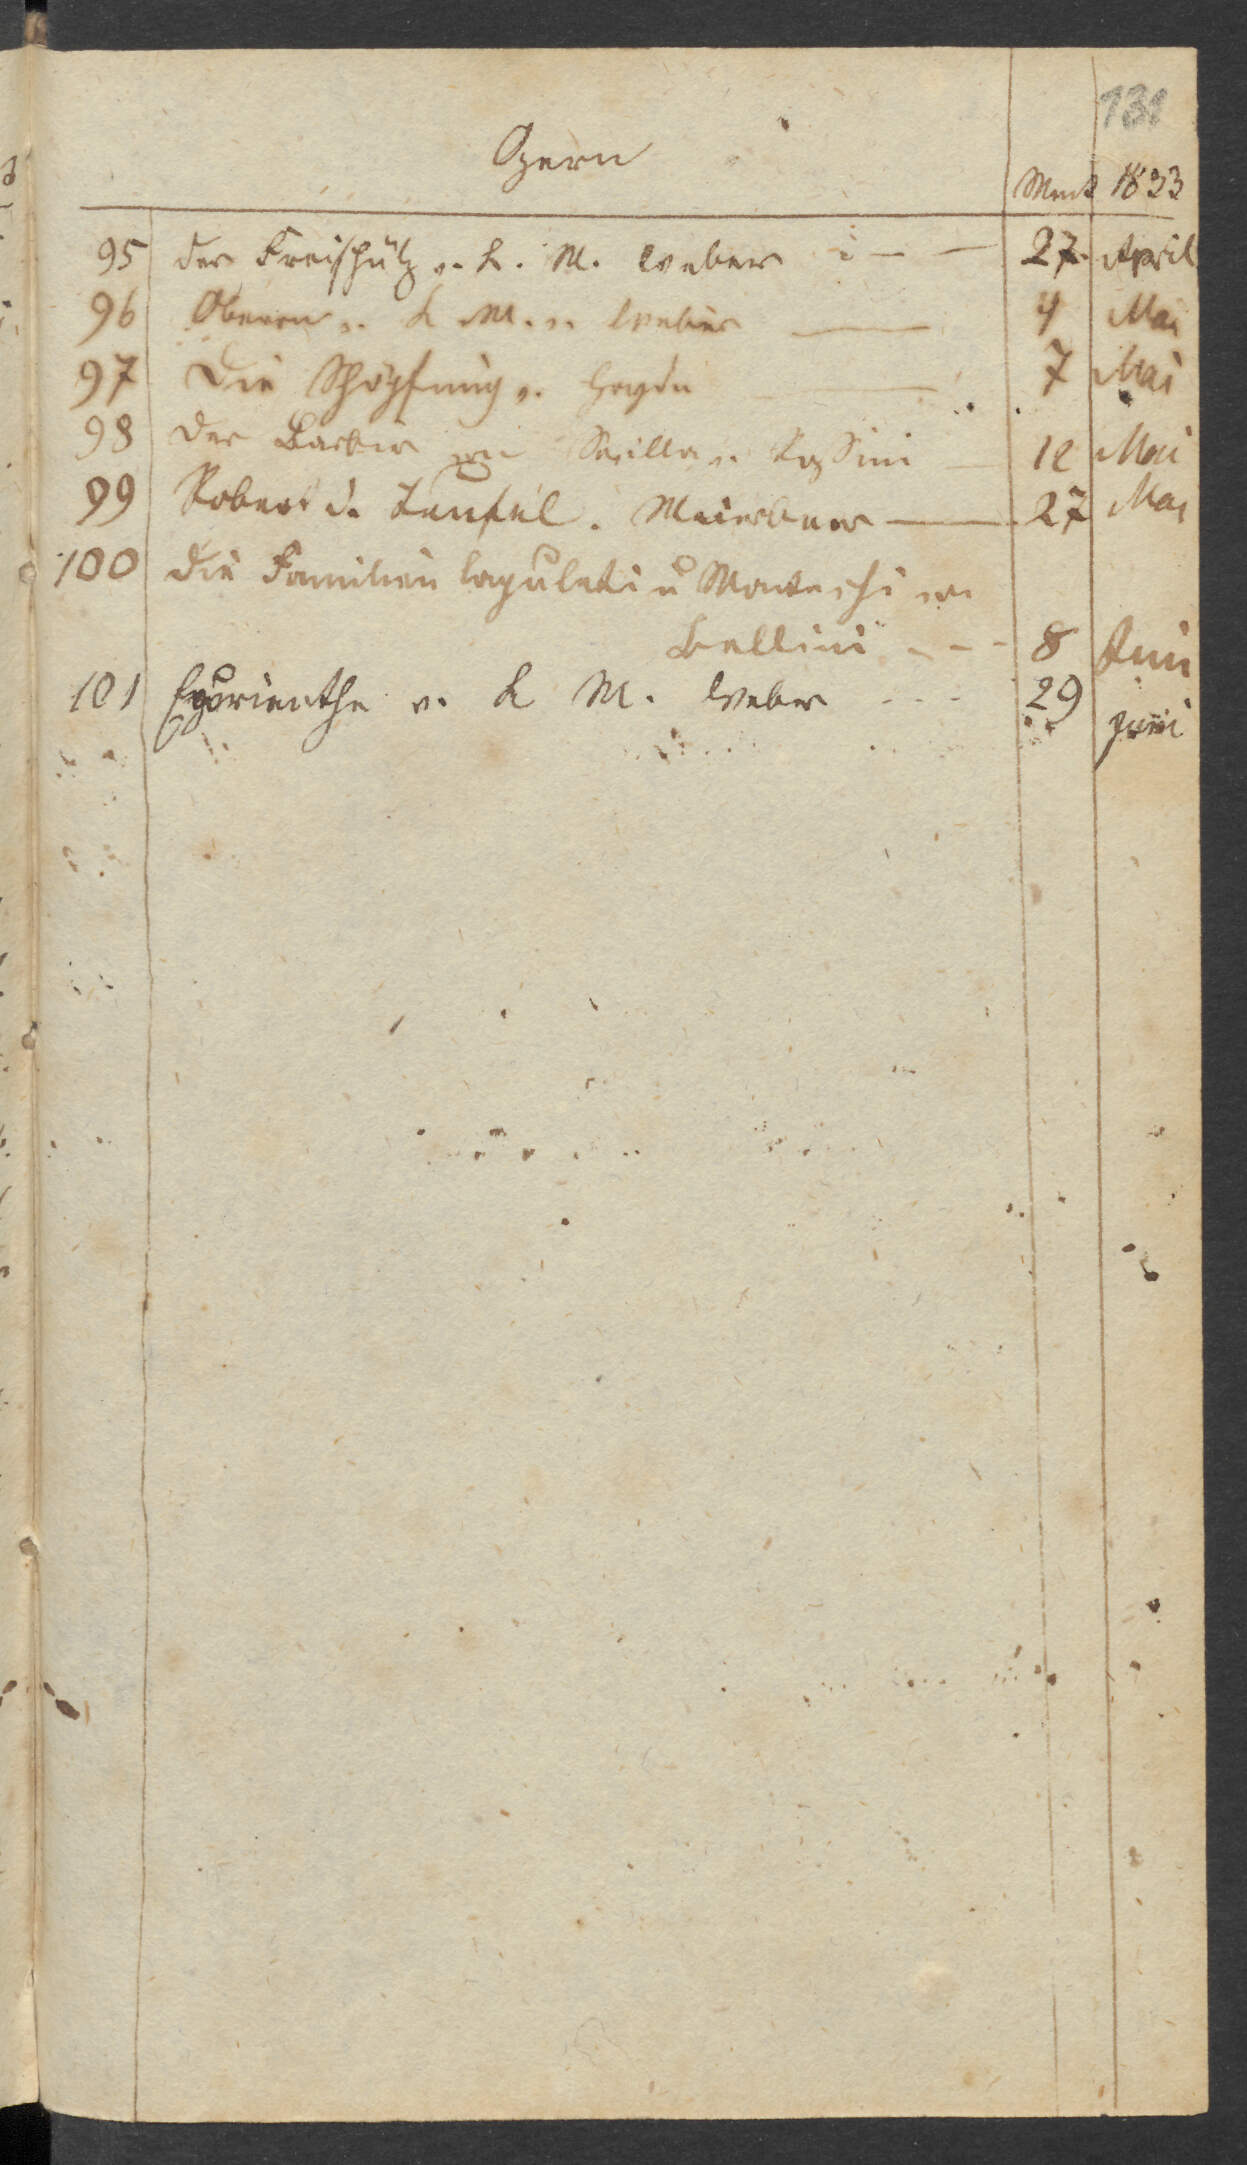 131
Opern
1833
95 der Freischütz v. K. M. Weber 27. April
96 Oberon v. K. M. v. Weber 4 Mai
97 Die Schöpfung v. Haydn 7 Mai
98 Der Barbier von Sevilla v. Rossini 12 Mai
99 Robert d. Teufel. Meierbeer 27 Mai
100 die Familien Capuleti u Montechi von
Bellini - - - 8 Juni
101 Eyurienthe v. K M. Weber - - - 29 juni